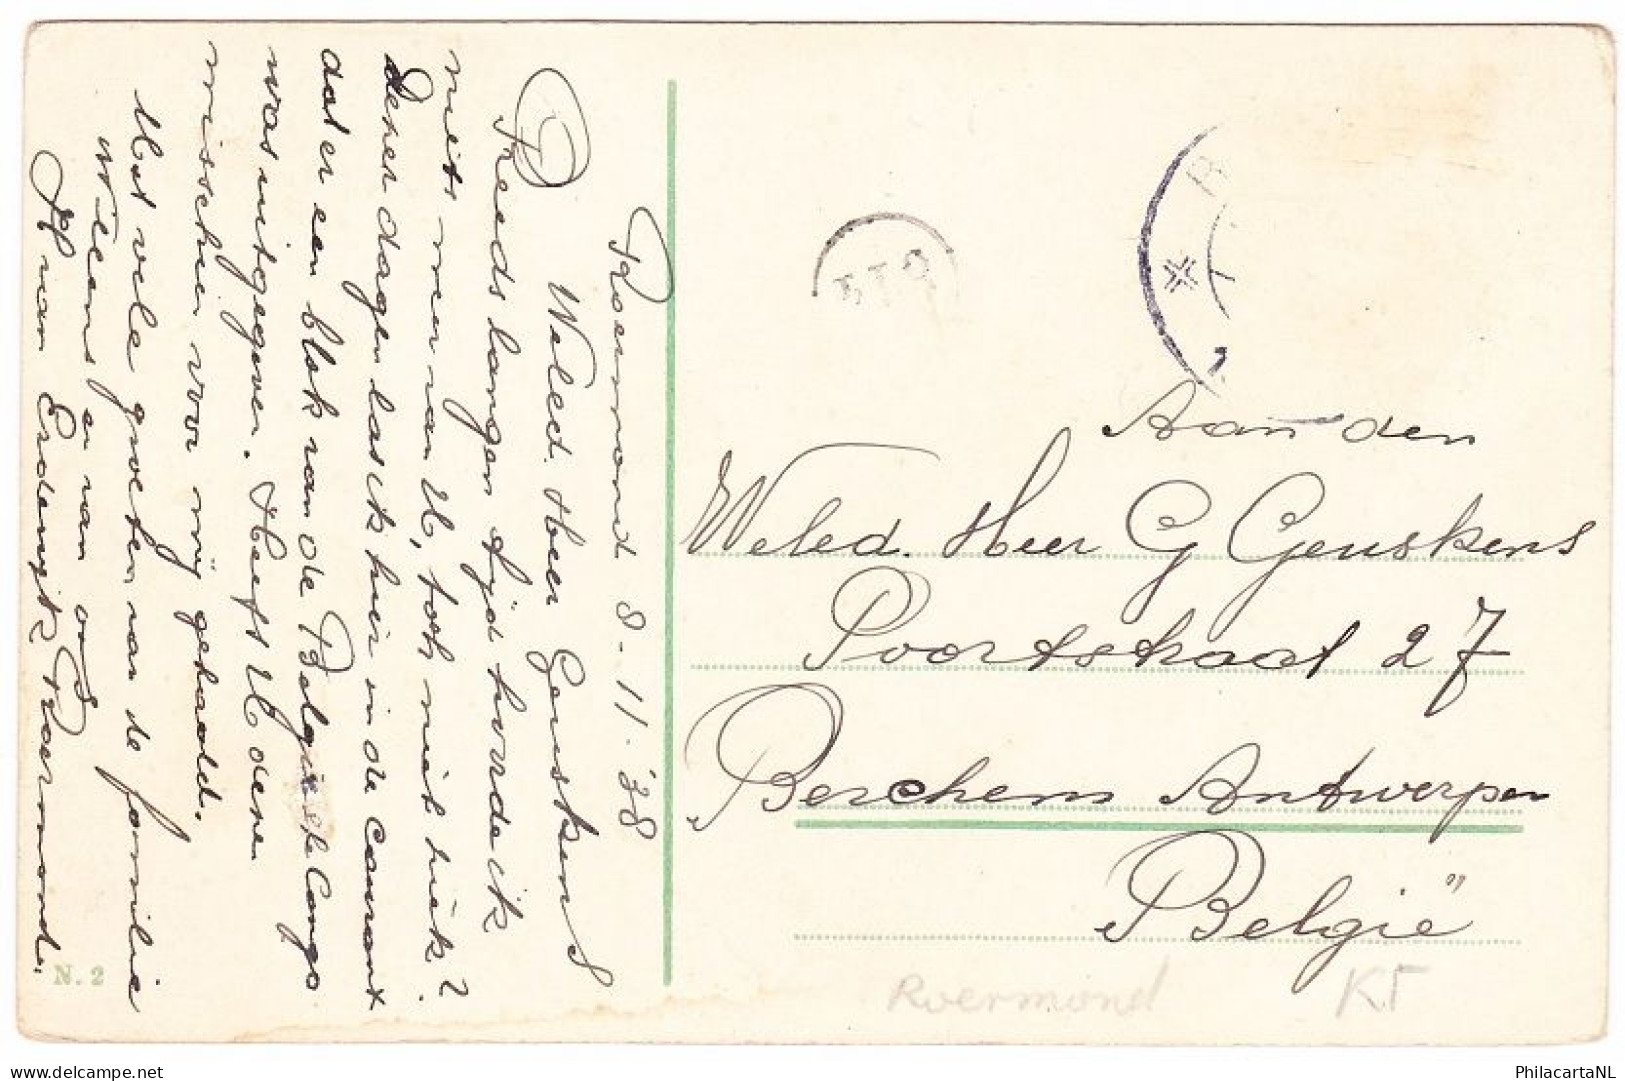 Roermond 8-11-'38
Weled. Heer Geuskens
Reeds langen tijd hoorde ik
niets meer van U, toch niet ziek?
Dezer dagen las ik hier in de Courant
dat er een blok van de Belgische Congo
was uitgegeven. Heeft U deze
misschien voor mij gehaald.
Met vele groeten van de familie
Willems en van
H van Erdewijk Roermond.
N. 2
Aan den
Weled. Heer G Geuskens
Poortstraat 27
Berchem Antwerpen
België
Roermond KT
PhilacartaNL